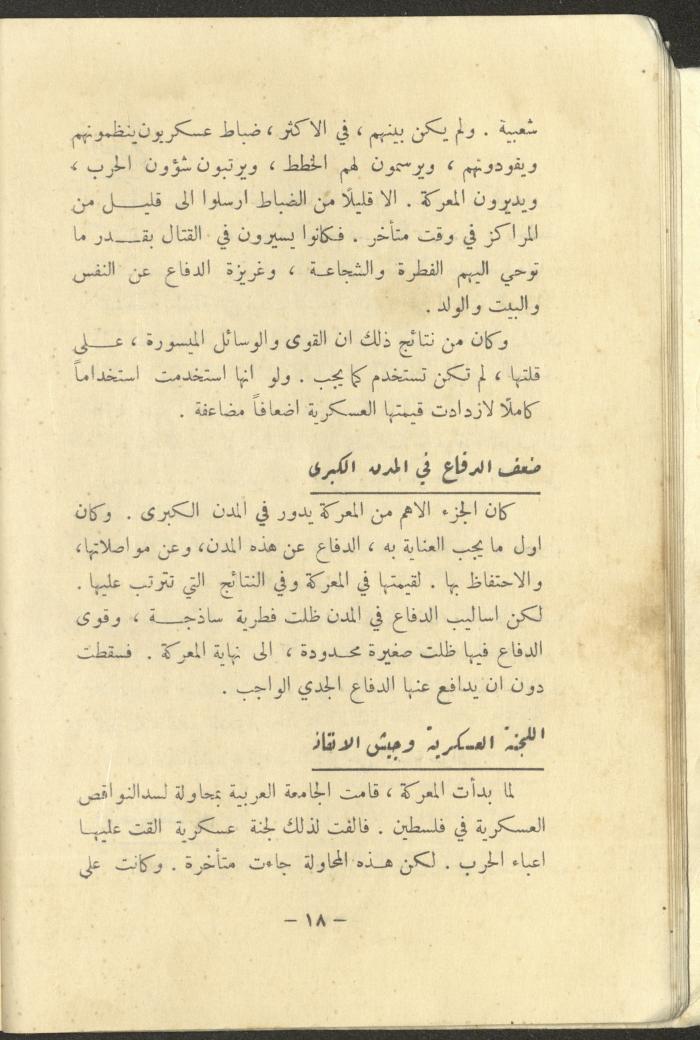 شعبية . ولم يكن بينهم ، في الاكثر ، ضباط عسكريون ينظمونهم
ويقودونهم ، ويرسمون لهم الخطط ، ويرتبون شؤون الحرب ،
ويديرون المعركة . الا قليلًا من الضباط ارسلوا الى قليل من
المراكز في وقت متأخر . فكانوا يسيرون في القتال بقدر ما
توحي اليهم الفطرة والشجاعة ، وغريزة الدفاع عن النفس
والبيت والولد .
وكان من نتائج ذلك ان القوى والوسائل الميسورة ، على
قلتها ، لم تكن تستخدم كما يجب . ولو انها استخدمت استخداماً
كاملًا لازدادت قيمتها العسكرية اضعافاً مضاعفة .
ضعف الدفاع في المدن الكبرى
كان الجزء الاهم من المعركة يدور في المدن الكبرى . وكان
اول ما يجب العناية به ، الدفاع عن هذه المدن، وعن مواصلاتها،
والاحتفاظ بها . لقيمتها في المعركة وفي النتائج التي تترتب عليها .
لكن اساليب الدفاع في المدن ظلت فطرية ساذجة ، وقوى
الدفاع فيها ظلت صغيرة محدودة ، الى نهاية المعركة . فسقطت
دون ان يدافع عنها الدفاع الجدي الواجب .
اللجنة العسكرية وجيش الانقاذ
لما بدأت المعركة ، قامت الجامعة العربية بمحاولة لسد النواقص
العسكرية في فلسطين . فالفت لذلك لجنة عسكرية القت عليها
اعباء الحرب . لكن هذه المحاولة جاءت متأخرة . وكانت على
– ١٨ –